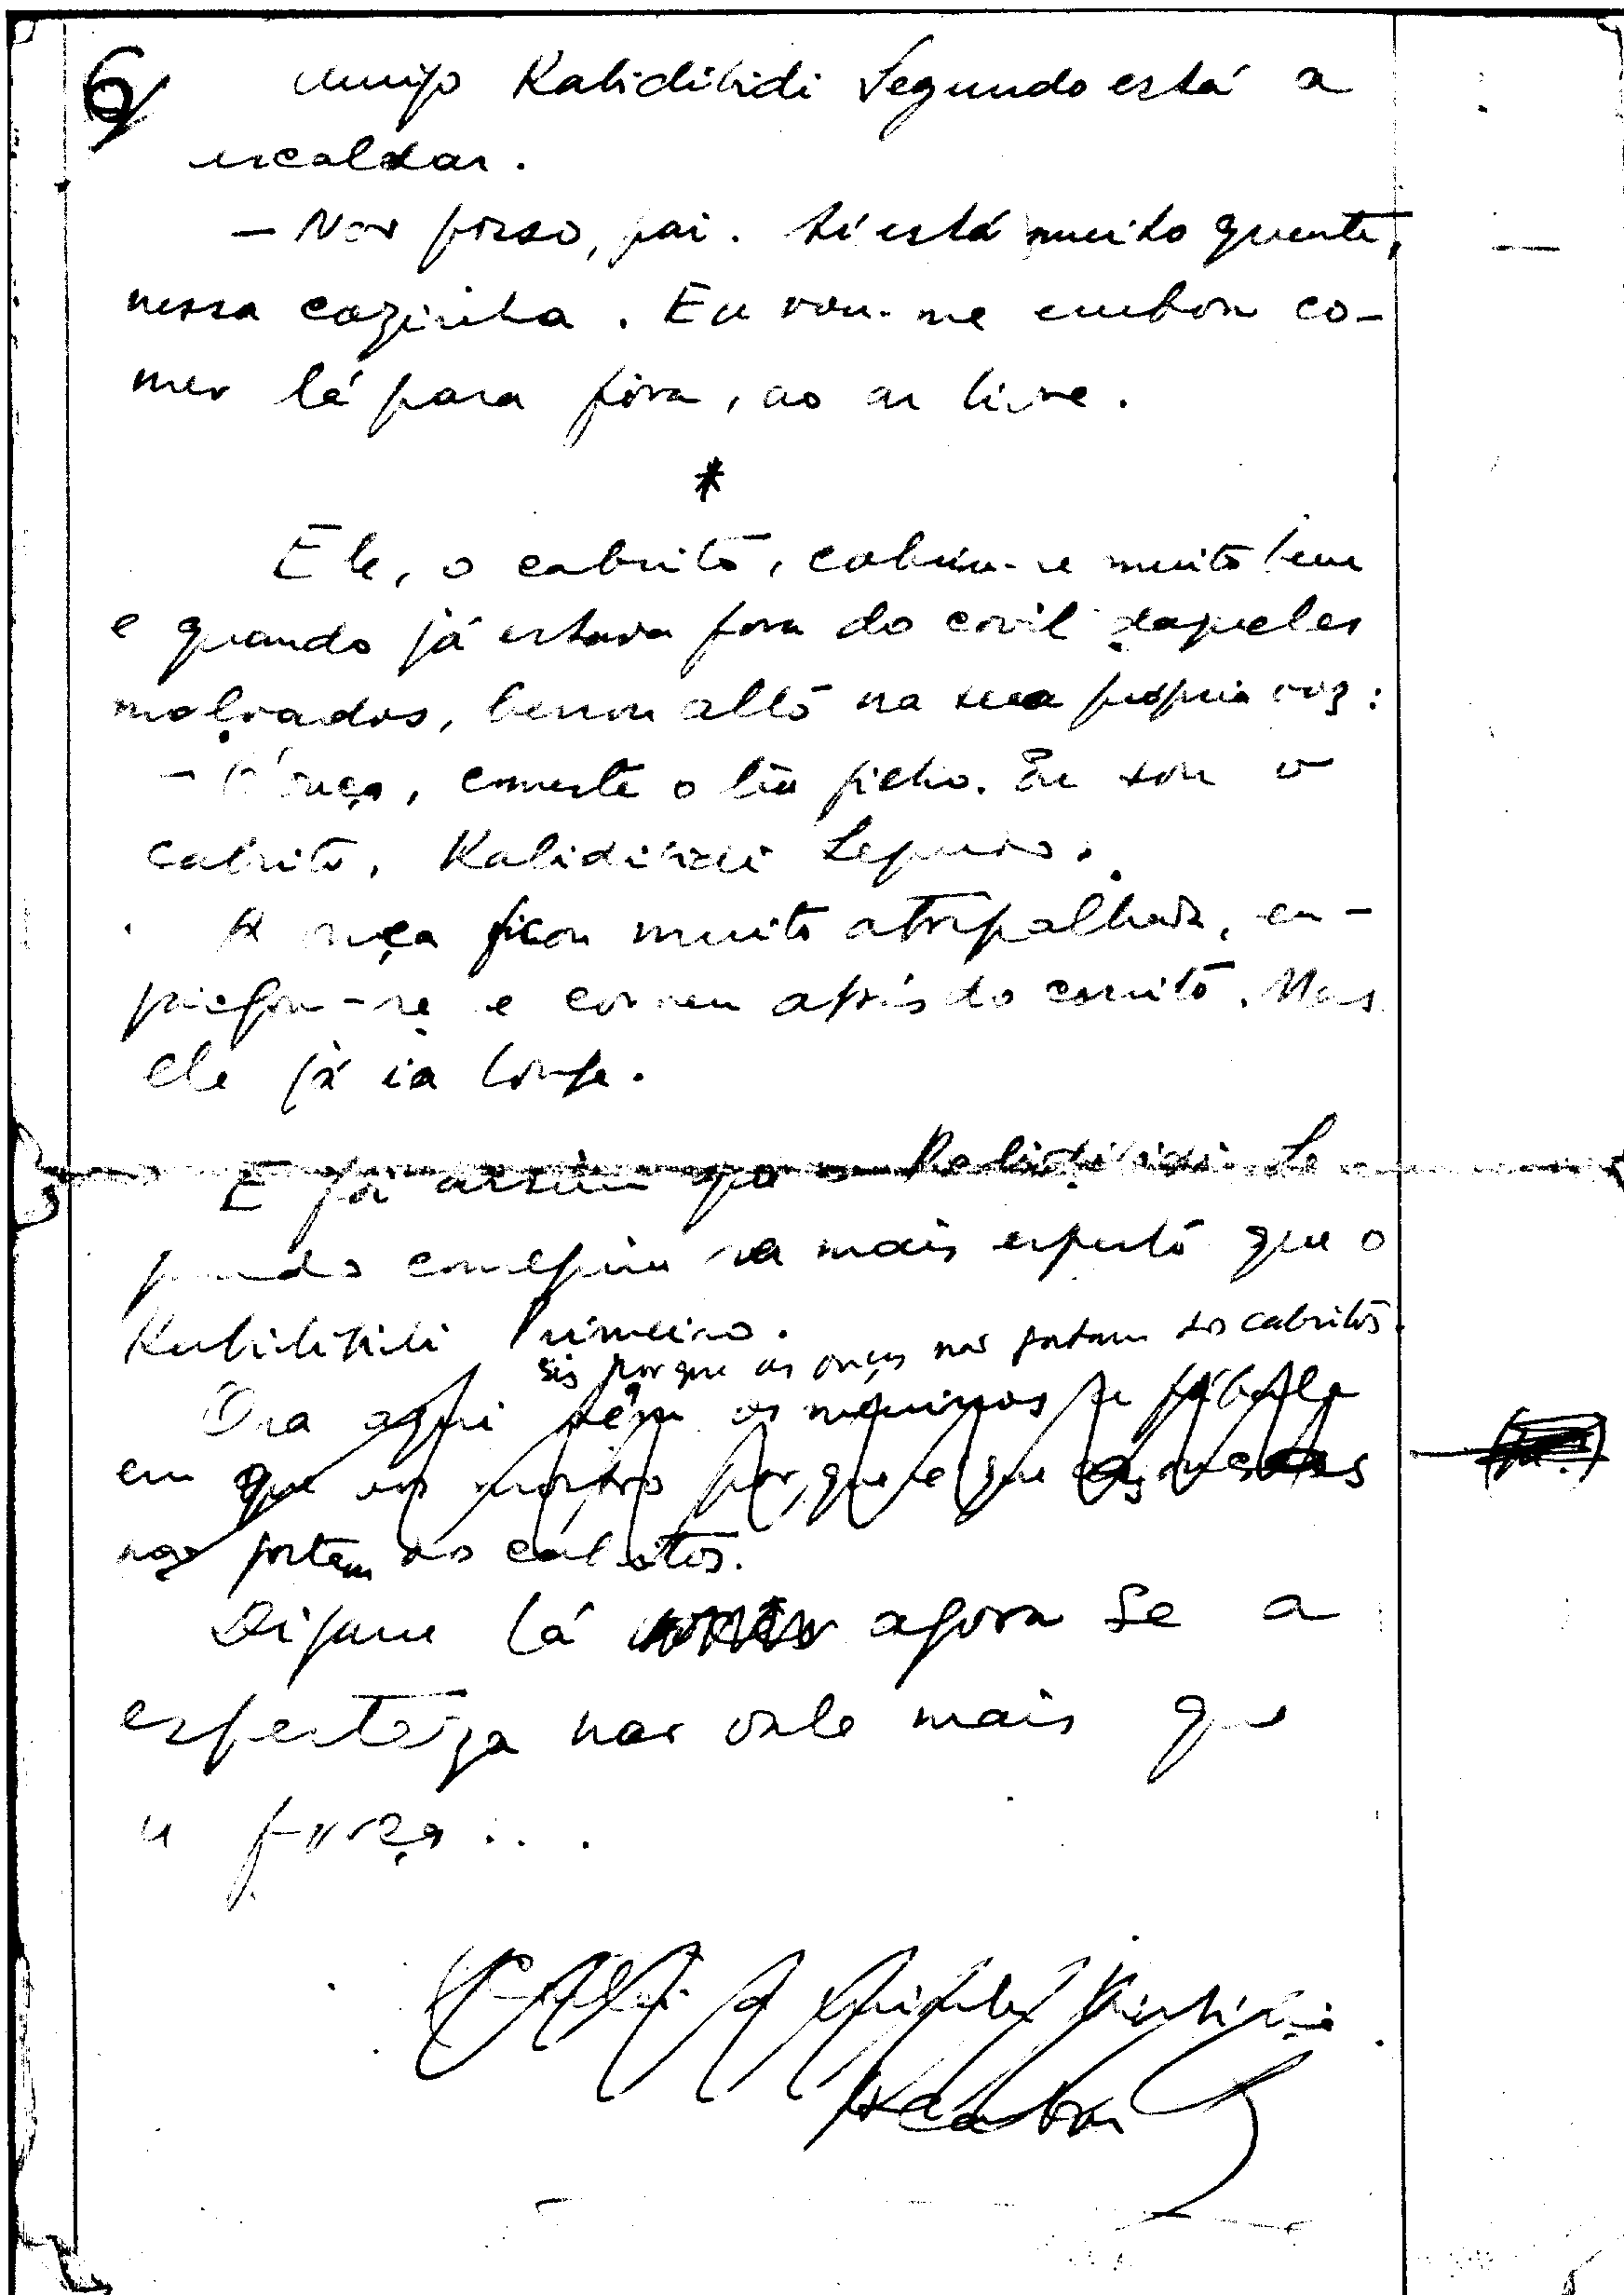 6
amigo Kalidilidi Segundo está a
escaldar.
— Não posso, pai. Aí está muito quente,
nessa cozinha. Eu vou-me embora co-
mer lá para fora, ao ar livre.
*
Ele, o cabrito, cobriu-se muito bem
e quando já estava fora do covil daqueles
malvados, berrou alto na sua própria voz:
— Ó onça, comeste o teu filho. Eu sou o
cabrito, Kalidilidi Segundo.
A onça ficou muito atrapalhada, en-
e correu atrás do cabrito. Mas
ele já ia longe.
E foi assim que o Kalidilidi Se
gundo conseguiu ser mais esperto que o
Kalidilidi Primeiro.
Eis porque as onças não gostam dos cabritos.
Ora aqui têm os meninos a fábula
em que vos mostro porque é que as onças
não gostam dos cabritos.
Digam lá agora se a
esperteza não vale mais que
a força...